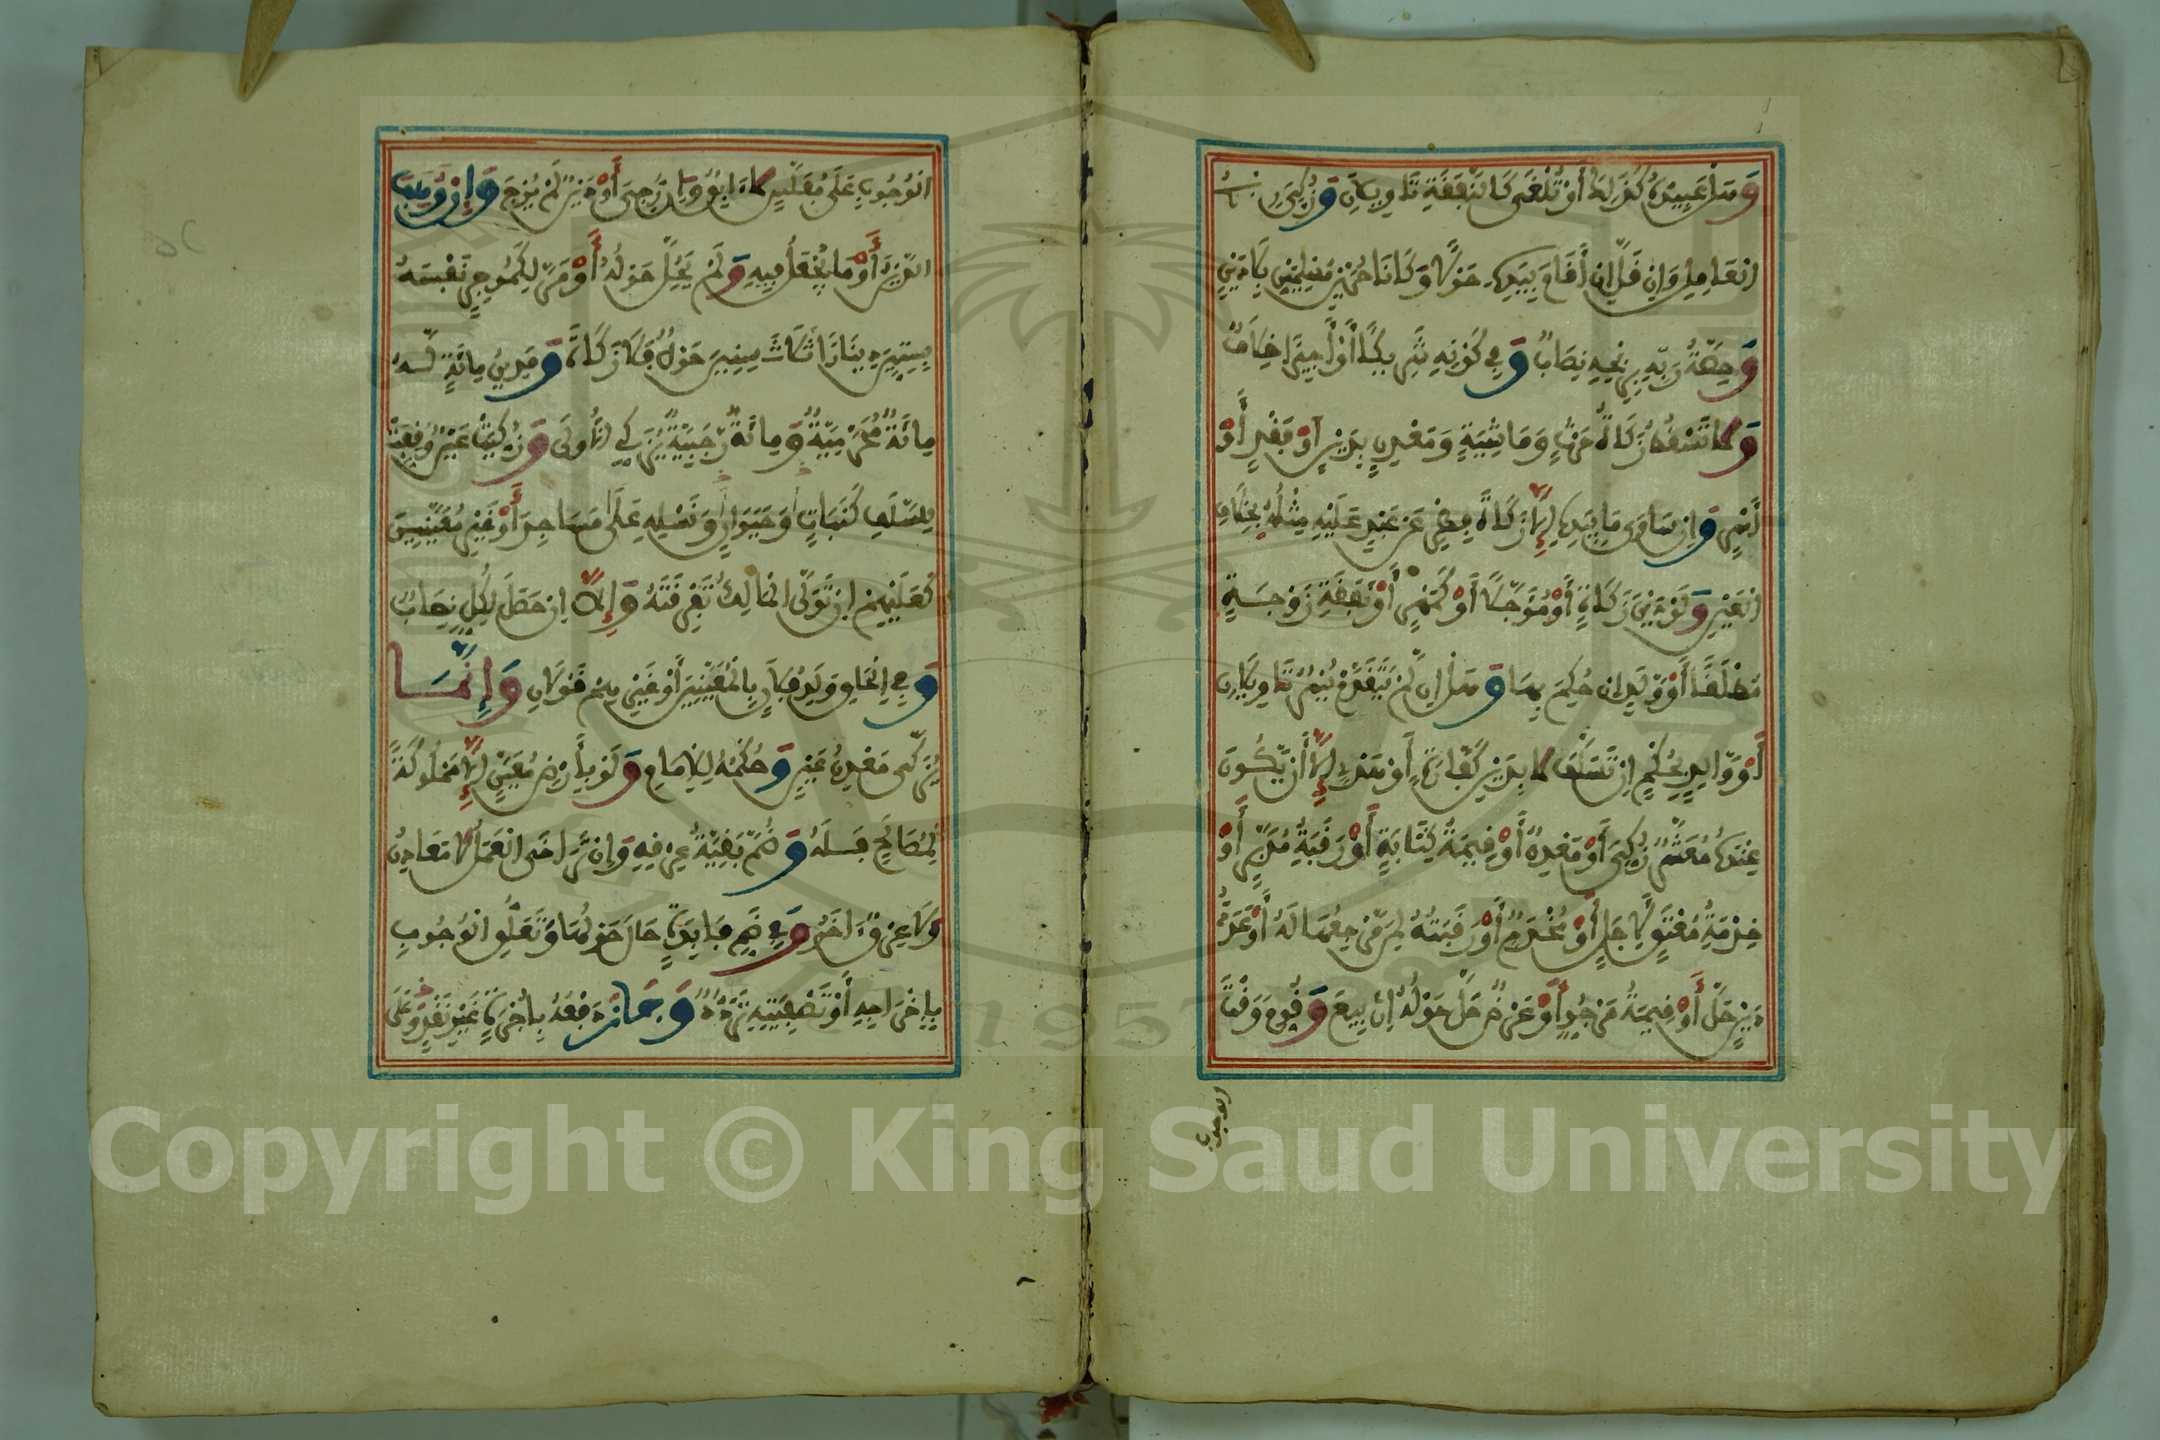 وهل عبيده كذلك أو تلغى كالنفقة تأويلان وزكي ربح
العامل وإن قل إن أقام بيده حولا وكانا حرين مسلمين بلا دين
وحصة ربه بربحه نصاب وفي كونه شريكا أو أجيرا خلاف
ولا تسقط زكاة حرث وماشية ومعدن بدين أو فقد أو
أسر وإن ساوى ما بيده إلا زكاة فطر عن عبد عليه مثله بخلاف
العين ولو دين زكاة أو مؤجلا أو كمهر أو نفقة زوجة
مطلقا أو ولد إن حكم بها وهل إن لم يتقدم يسر تأويلان
أو والد بحكم إن تسلف لا بدين كفارة أو هدي إلا أن يكون
عنده معشر زكي أو معدن أو قيمة كتابة أو رقبة مدبر أو
خدمة معتق لأجل أو مخدم أو رقبته لمن مرجعها له أو عدد
دين حل أو قيمة مرجو أو عرض حل حوله إن بيع وقوم وقت
الوجوب
الوجوب على مفلس لا آبق وإن رجي أو دين لم يرج وإن وهب
الدين أو ما يجعل فيه ولم يحل حوله أو مر لكمؤجر نفسه
بستين دينارا ثلاث سنين حول فلا زكاة ومدين مائة له
مائة محرمية ومائة رجبية يزكي الأولى وزكيت عين وقفت
للسلف كنبات أو حيوان أو نسله على مساجد أو غير معينين
كعليهم إن تولى المالك تفرقته وإلا إن حصل لكل نصاب
وفي إلحاق ولد فلان بالمعينين أو غيرهم قولان وإنما
يزكى معدن عين وحكمه للإمام ولو بأرض معين إلا مملوكة
لمصالح فله وضم بقية عرقه وإن تراخى العمل لا معادن
ولا عرق آخر وفي ضم فائدة حال حولها وتعلق الوجوب
بإخراجه أو تصفيته تردد وجاز دفعه بأجرة غير نقد وعلى
1957
Copyright © King Saud University